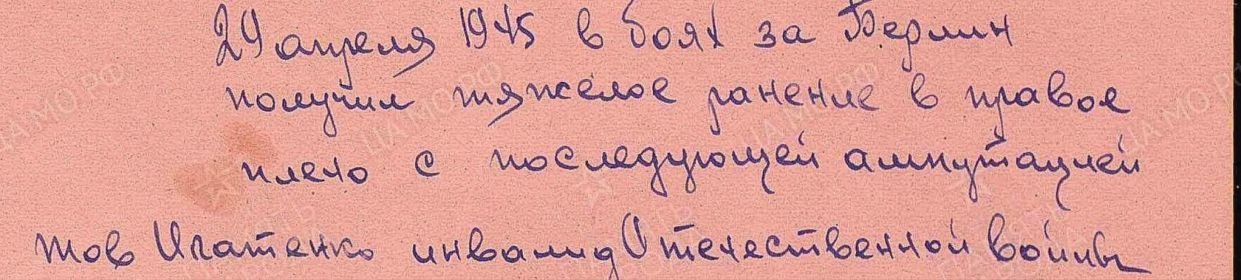 29 апреля 1945 в боях за Берлин
получил тяжелое ранение в правое
плечо с последующей ампутацией
тов Игнатенко инвалид Отечественной войны